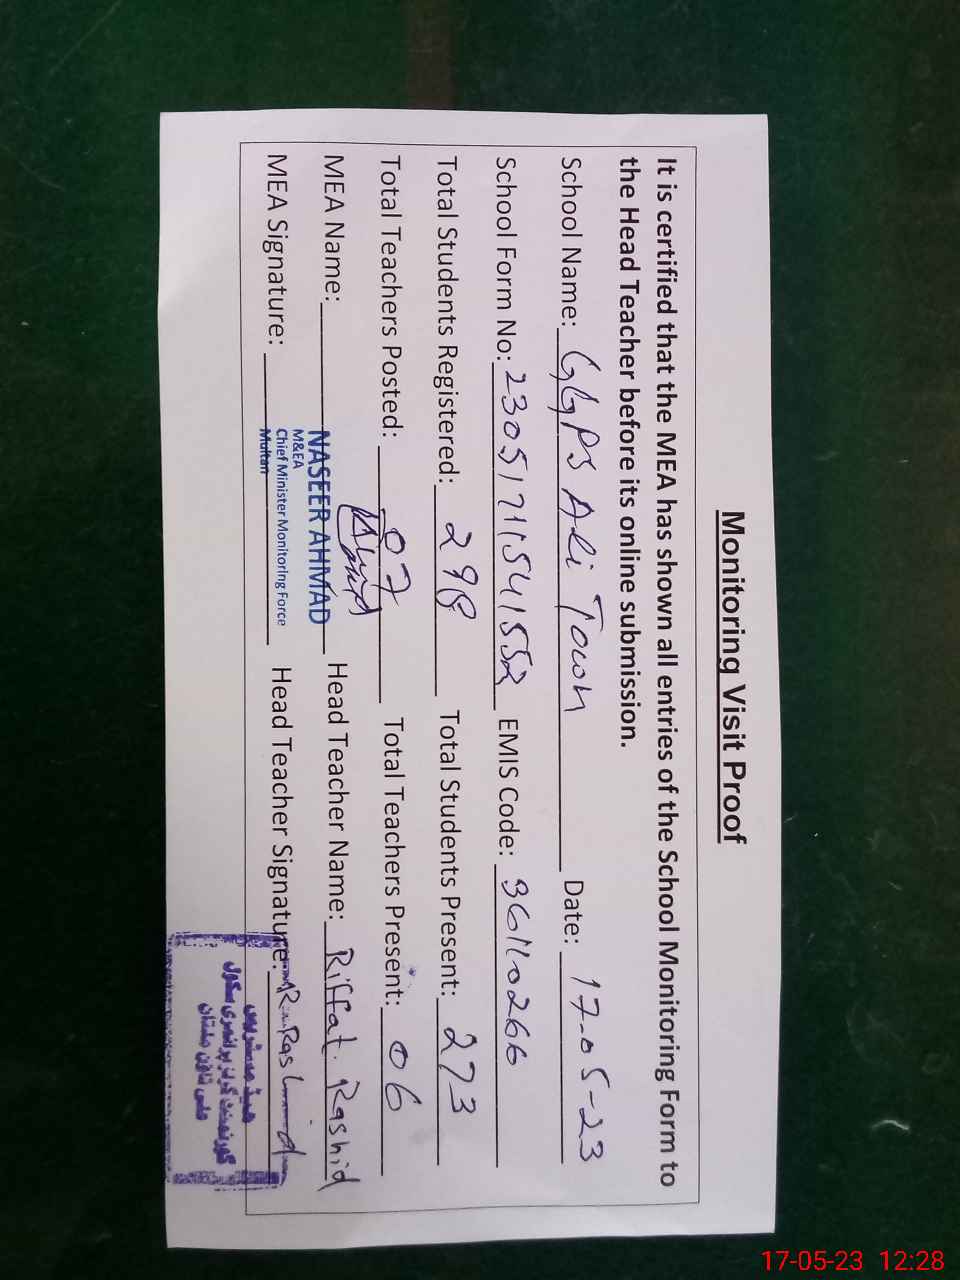 Monitoring Visit Proof
It is certified that the MEA has shown all entries of the School Monitoring Form to
the Head Teacher before its online submission.
School Name: GGPS Ali Town Date: 17-05-23
School Form No: 23051711541552 EMIS Code: 36110266
Total Students Registered: 298 Total Students Present: 273
Total Teachers Posted: 07 Total Teachers Present: 06
MEA Name: NASEER AHMAD Head Teacher Name: Riffat Rashid
M&EA
Chief Minister Monitoring Force
Multan
MEA Signature: Head Teacher Signature: R. Rashid
ہیڈ مسٹریس
گورنمنٹ گرلز پرائمری سکول
علی ٹاؤن ملتان
17-05-23 12:28